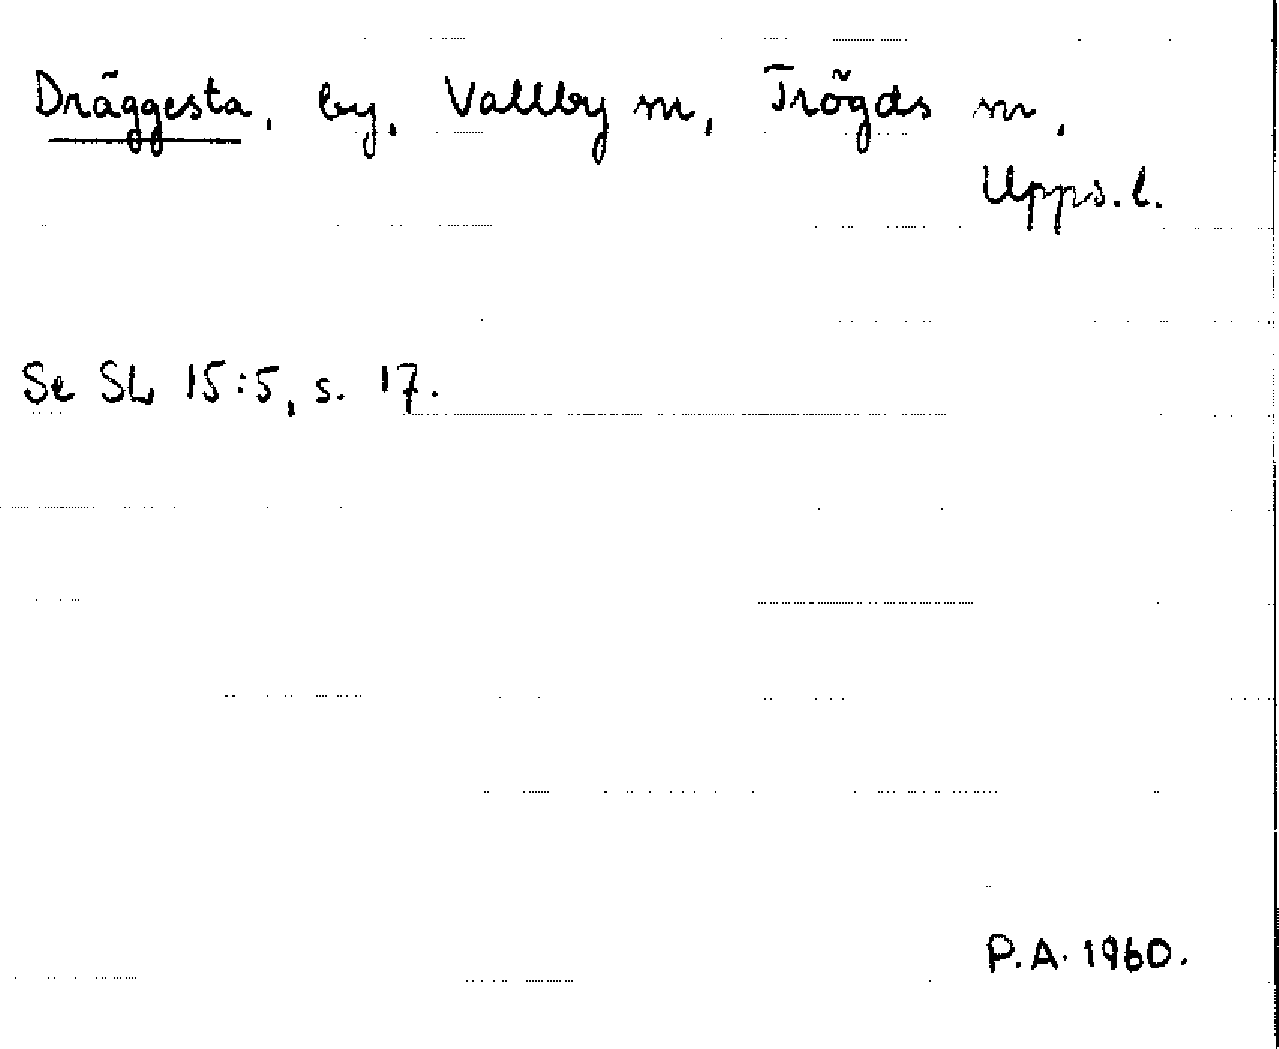 Dräggesta, by, Vallby sn, Trögds sn,
Upps.l.
Se SL 15:5, s. 17.
P.A. 1960.